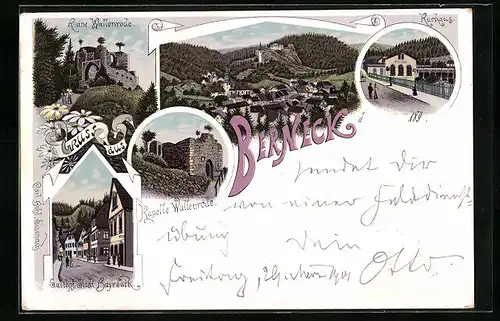 Ruine Wallenrode.
Kurhaus.
189
Gruss aus
BERNECK
Kapelle Wallenrode.
Gasthof Stadt Bayreuth
sendet Dir
von einer Felddienst-
übung Dein
Freitag, Otto.